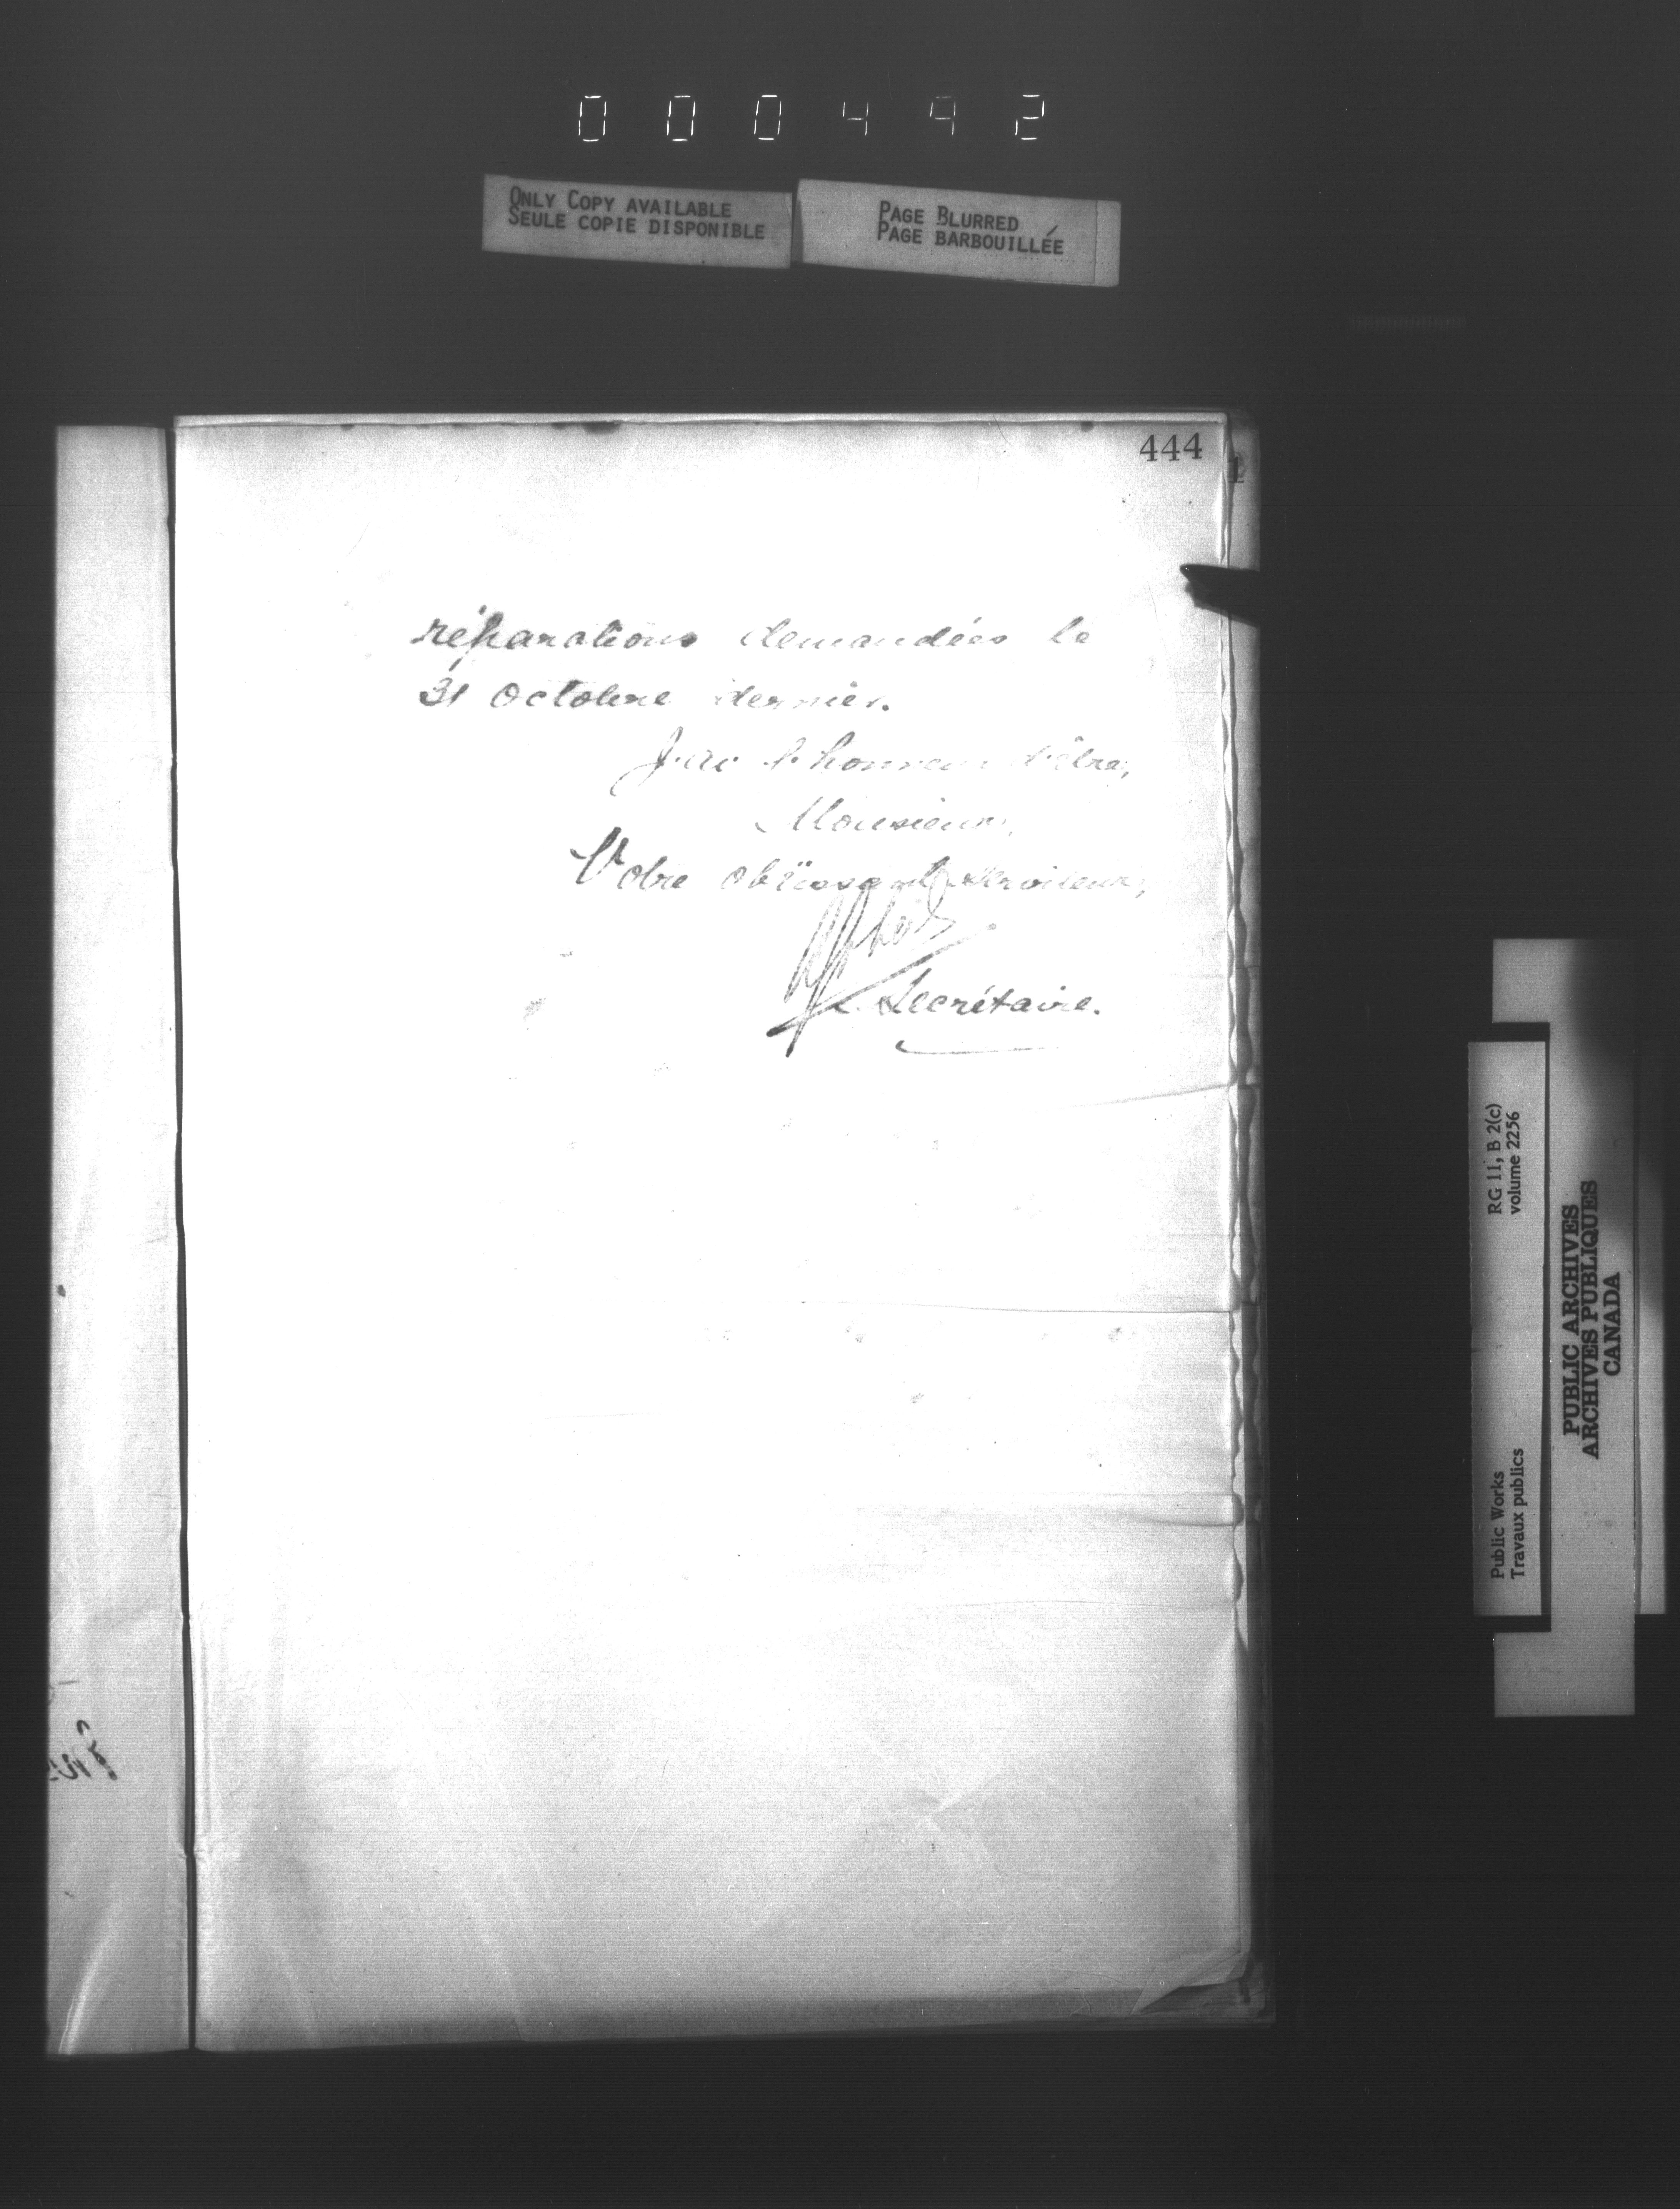 000492
ONLY COPY AVAILABLE
SEULE COPIE DISPONIBLE
PAGE BLURRED
PAGE BARBOUILLÉE
444
réparations demandées le
31 Octobre dernier.
J'ai l'honneur d'être,
Monsieur,
Votre obéissant serviteur,
Secrétaire.
RG 11, B 2(c)
volume 2256
Public Works
Travaux publics
PUBLIC ARCHIVES
ARCHIVES PUBLIQUES
CANADA